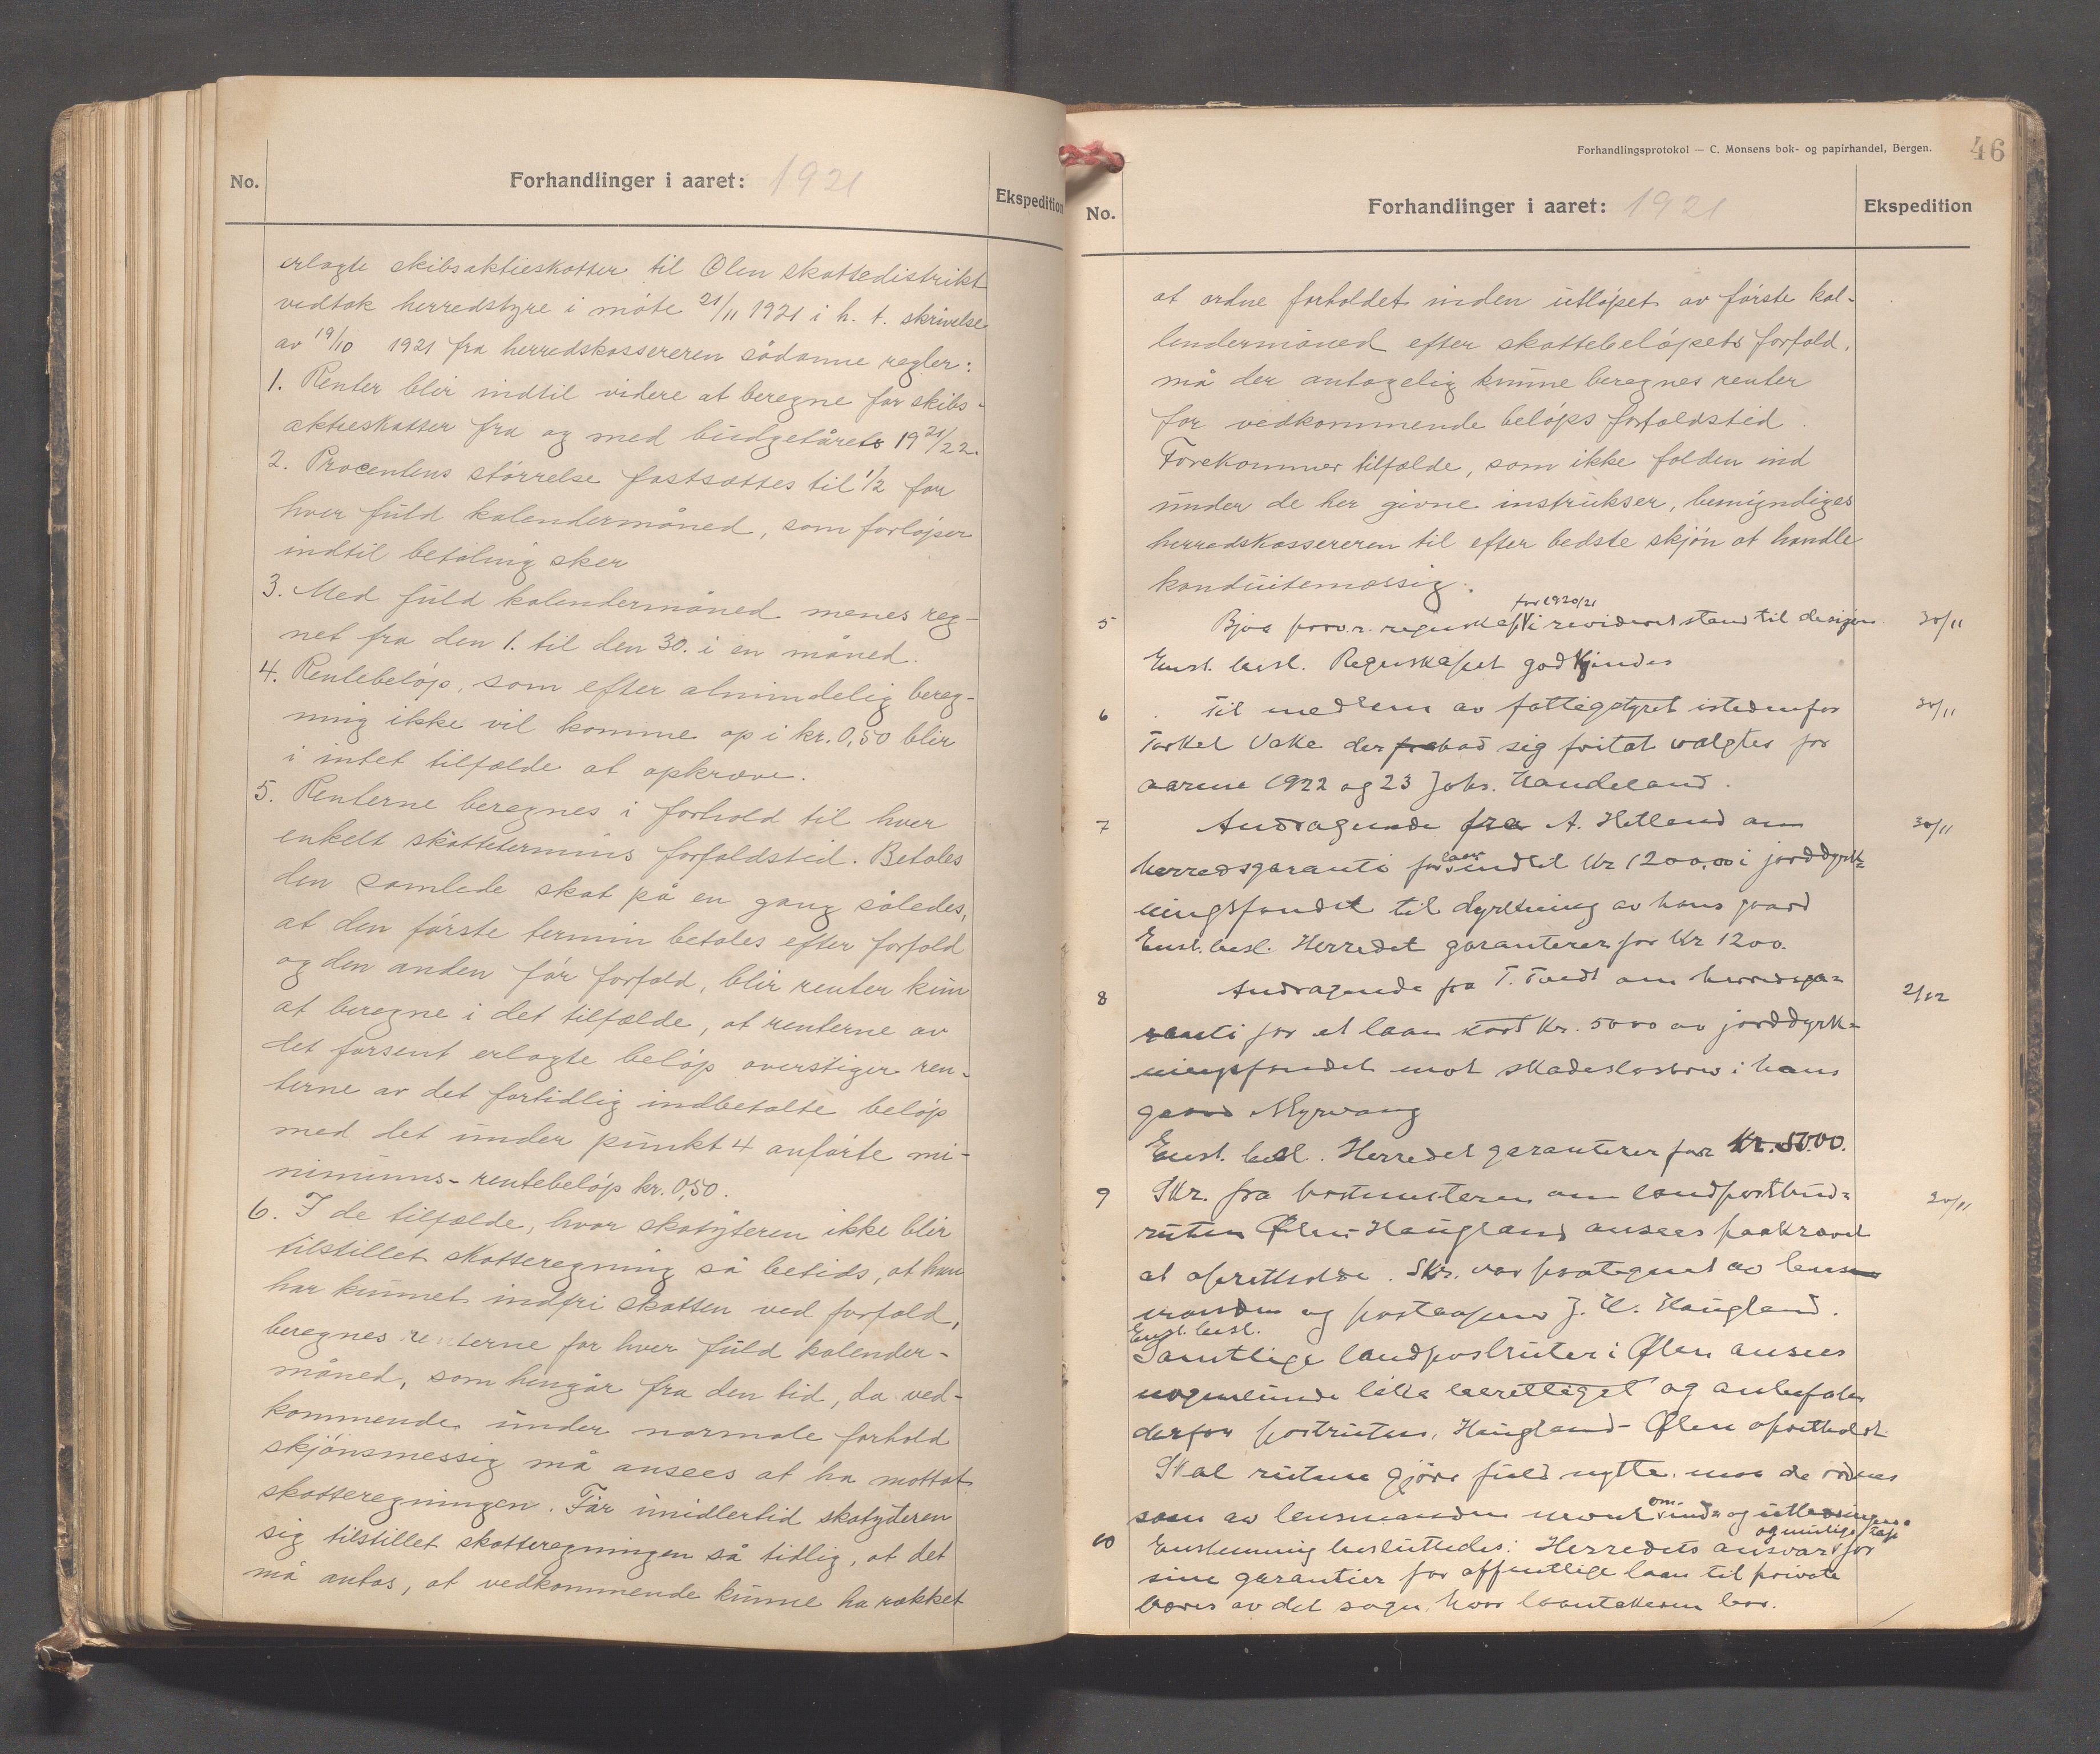 No.
Forhandlinger i aaret: 1921
Ekspedition
erlagte skibsaktieskatter til Ølen skattedistrikt
vedtok herredstyre i møte 21/11 1921 i h. t. skrivelse
av 19/10 1921 fra herredskassereren sådanne regler:
1. Renter blir indtil videre at beregne for skibs-
aktieskatter fra og med budgetårets 1921/22.
2. Procentens størrelse fastsættes til 1/2 for
hver fuld kalendermåned, som forløper
indtil betaling sker
3. Med fuld kalendermåned menes reg-
net fra den 1. til den 30. i en måned.
4. Rentebeløp, som efter almindelig bereg-
ning ikke vil komme op i kr. 0,50 blir
i intet tilfælde at opkræve.
5. Renterne beregnes i forhold til hver
enkelt skattetermins forfaldstid. Betales
den samlede skat på en gang således,
at den første termin betales efter forfald
og den anden før forfald, blir renter kun
at beregne i det tilfælde, at renterne av
det forsent erlagte beløp overstiger ren-
terne av det fortidlig indbetalte beløp
med det under punkt 4 anførte mi-
nimums-rentebeløp kr. 0,50.
6. I de tilfælde, hvor skatyteren ikke blir
tilstillet skatteregning så betids, at han
har kunnet indfri skatten ved forfald,
beregnes renterne for hver fuld kalender-
måned, som hengår fra den tid, da ved-
kommende under normale forhold
skjønsmessig må ansees at ha mottat
skatteregningen. Får imidlertid skatyteren
sig tilstillet skatteregningen så tidlig, at det
må antas, at vedkommende kunne ha rækket
Forhandlingsprotokol — C. Monsens bok- og papirhandel, Bergen.
46
No.
Forhandlinger i aaret: 1921
Ekspedition
at ordne forholdet inden utløpet av første kal-
lendermåned efter skattebeløpets forfald,
må der antagelig kunne beregnes renter
for vedkommende beløps forfaldstid.
Forekommer tilfælde, som ikke falden ind
under de her givne instrukser, bemyndiges
herredskassereren til efter bedste skjøn at handle
konduitemæssig.
for 1920/21
5 Bjoa regnskap i revideret stand til desisjon 30/11
Enst. besl. Regnskapet godkjendes
6 Til medlem av fattigstyret istedenfor 30/11
Torkel Vake der frabad sig fritat valgtes for
aarene 1922 og 23 Johs. Handeland.
7 Andragende fra A. Hetland om 30/11
herredsgaranti for laan indtil Kr 1200.00 i jorddyrk-
ningsfondet til dyrkning av hans gaard
Enst. besl. Herredet garanterer for Kr 1200.
8 Andragende fra T. Tvedt om herredsga- 2/12
ranti for et laan stort Kr. 5000 av jorddyrk-
ningsfondet mot skadesløsbrev i hans
gaard Myrvang
Enst. besl. Herredet garanterer for Kr. 5000.
9 Skr. fra postmesteren om landpostbud- 30/11
ruten Ølen-Haugland ansees paakrævet
at opretholde. Skr. var paategnet av lens-
manden og postaapner J. H. Haugland.
Enst. besl.
Samtlige landpostruter i Ølen ansees
nogenlunde like berettiget og anbefales
derfor postruten Haugland-Ølen opretholdt.
Skal rutene gjøre fuld nytte maa de ordnes
som av lensmanden nevnt om ind- og utleveringen.
10 Enstemmig besluttedes: Herredets ansvar og mulige tap for
sine garantier for offentlige laan til private
bæres av det sogn hvor laantakeren bor.